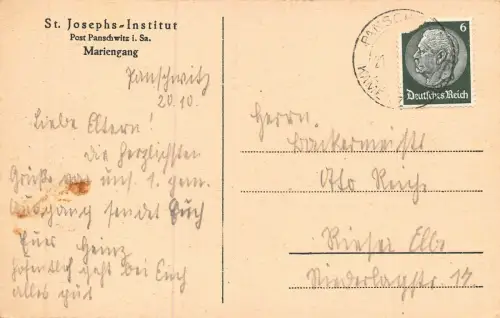 St. Josephs-Institut
Post Panschwitz i. Sa.
Mariengang
Panschwitz
20.10.
Liebe Eltern!
die herzlichsten
Grüße von uns. 1. gem.
Ausgang sendet Euch
Euer Heinz
hoffentlich geht bei Euch
alles gut
PANSCH
21
6
Deutsches Reich
Herrn
Bäckermeister
Otto Reiche
Riesa Elbe
Niederlagstr. 17